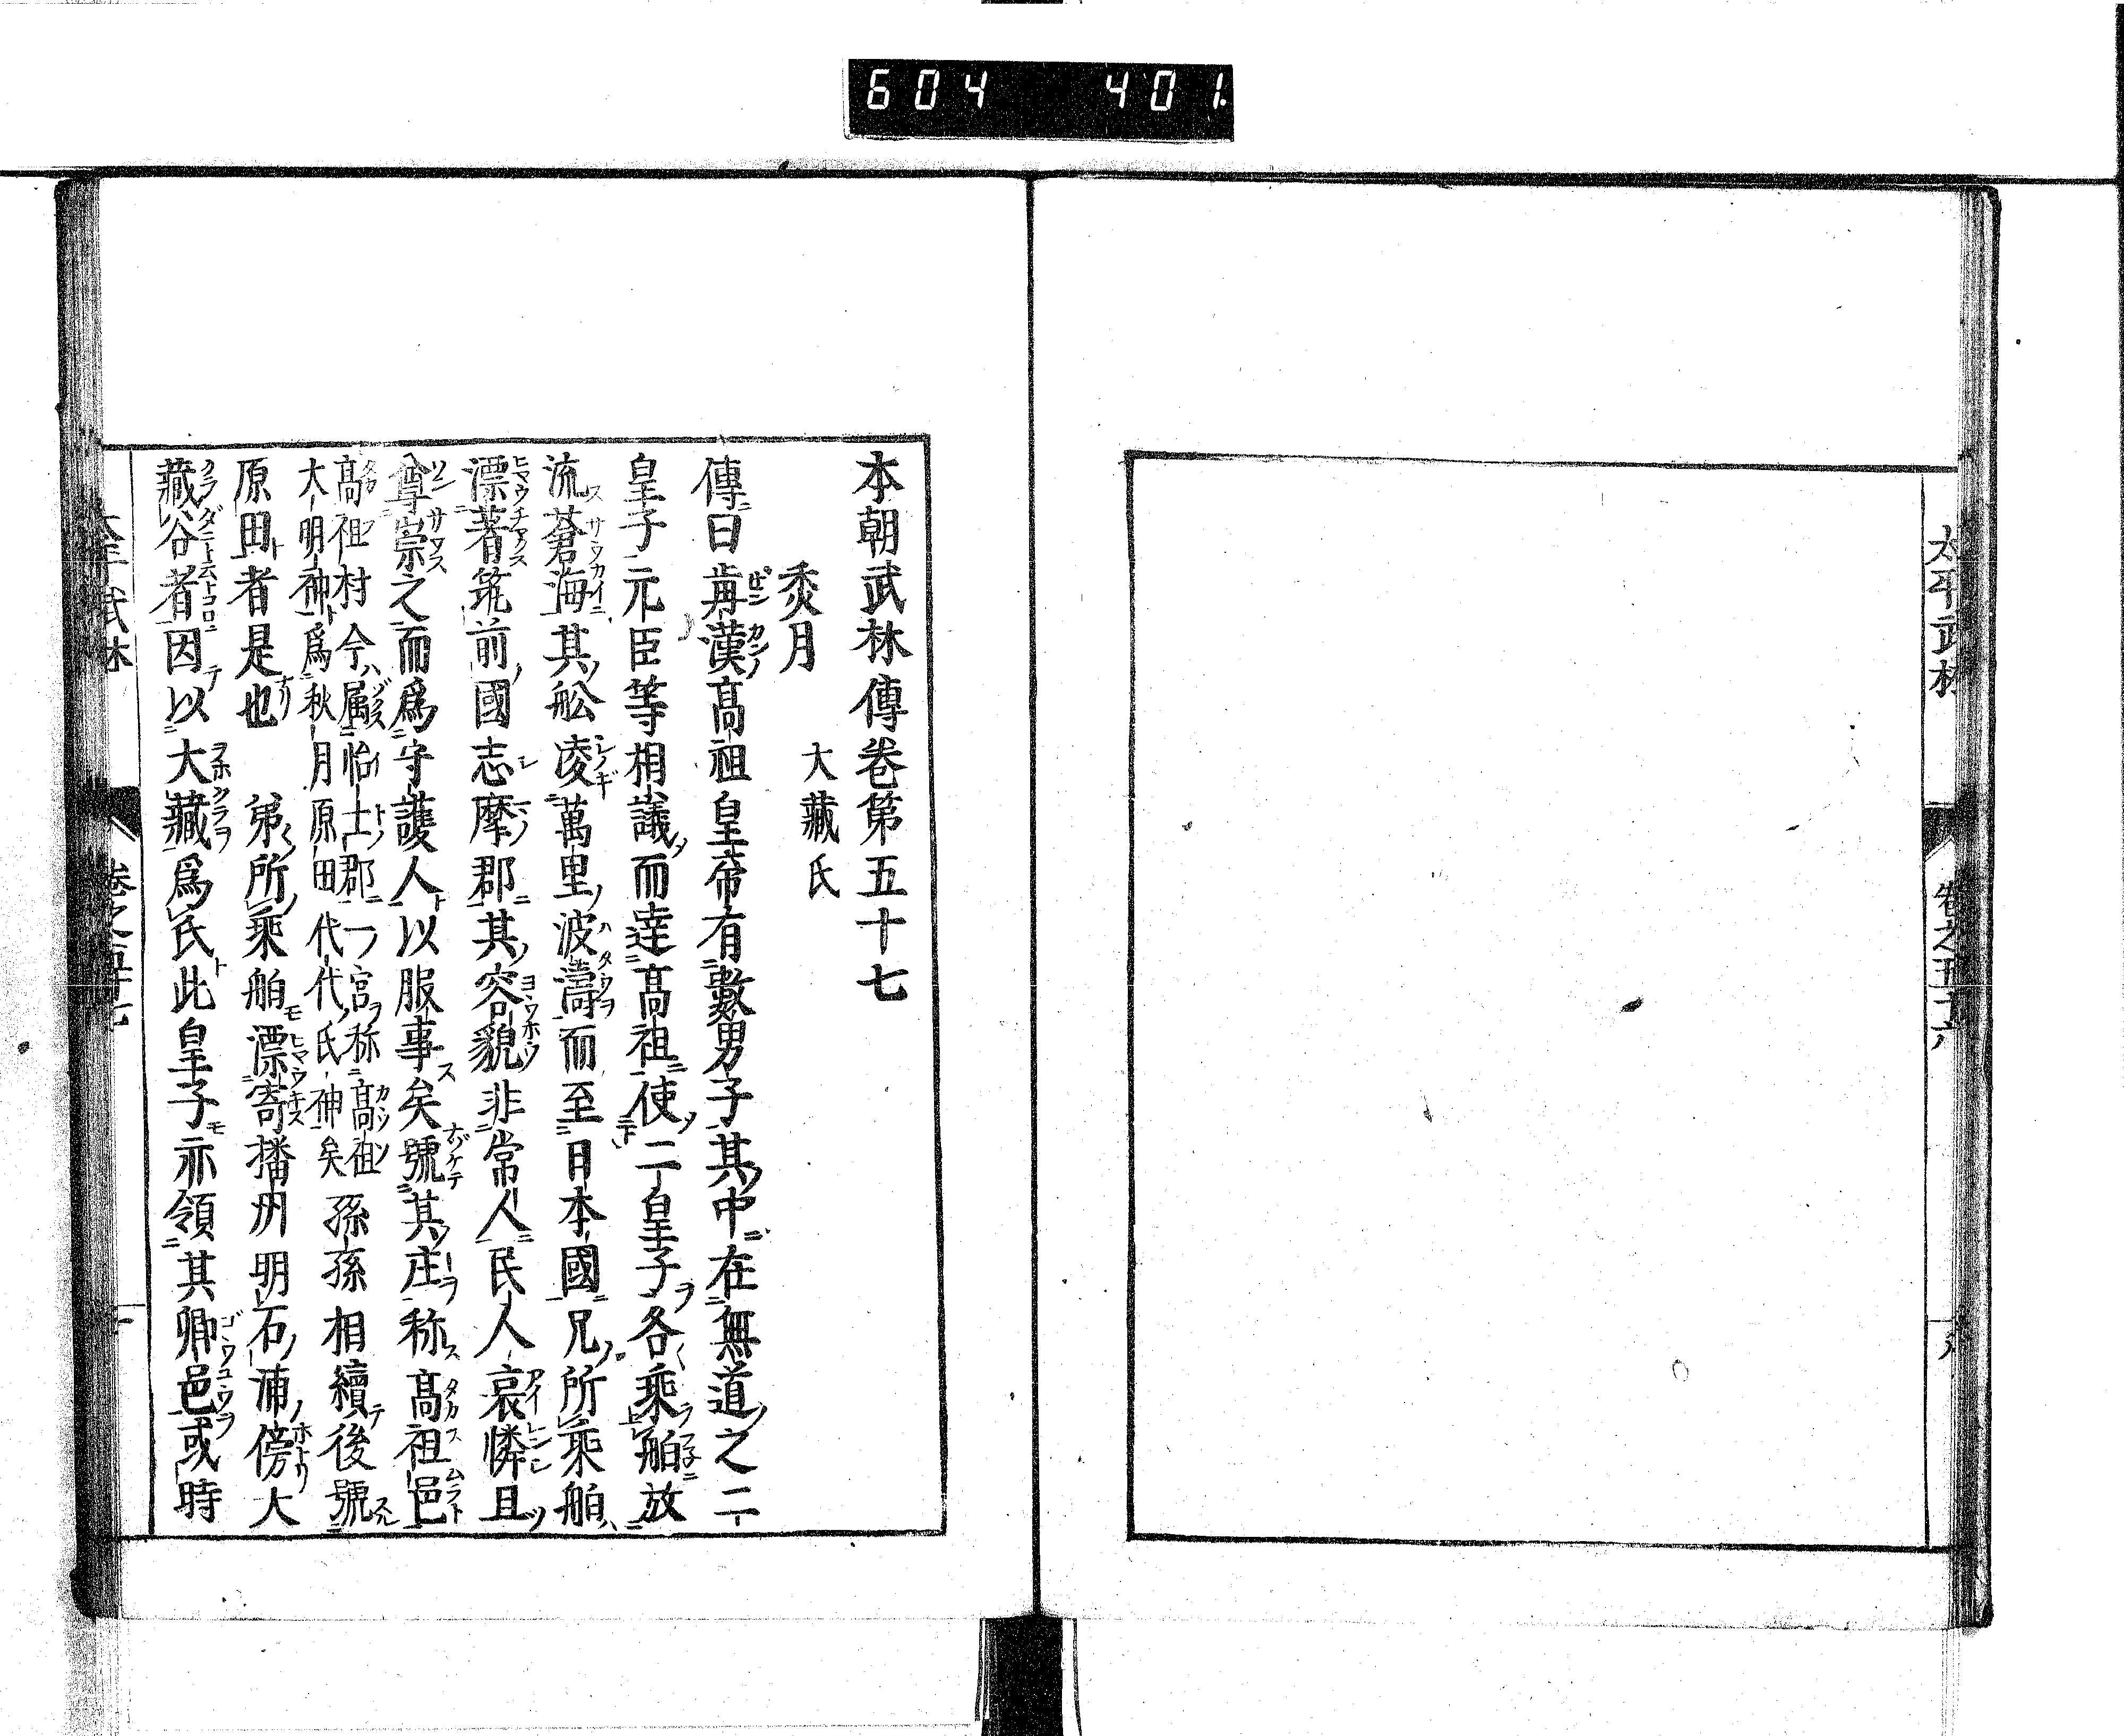 604 401
太平武林 卷之五十六
本朝武林傳卷第五十七
秋月 大藏氏
傳曰前漢高祖皇帝有數男子其中在無道之二
皇子元臣等相議而達高祖使二皇子各乘舶放
流蒼海其舩凌萬里波濤而至日本國兄所乘舶
漂著筑前國志摩郡其容貌非常人民人哀憐且
尊崇之而爲守護人以服事矣號其庄称高祖邑
高祖村今属怡土郡一宮称高祖
大明神爲秋月原田代代氏神矣
孫孫相續後號
原田者是也 弟所乘舶漂寄播州明石浦傍大
藏谷者因以大藏爲氏此皇子亦領其卿邑或時
太平武林 卷之五十七